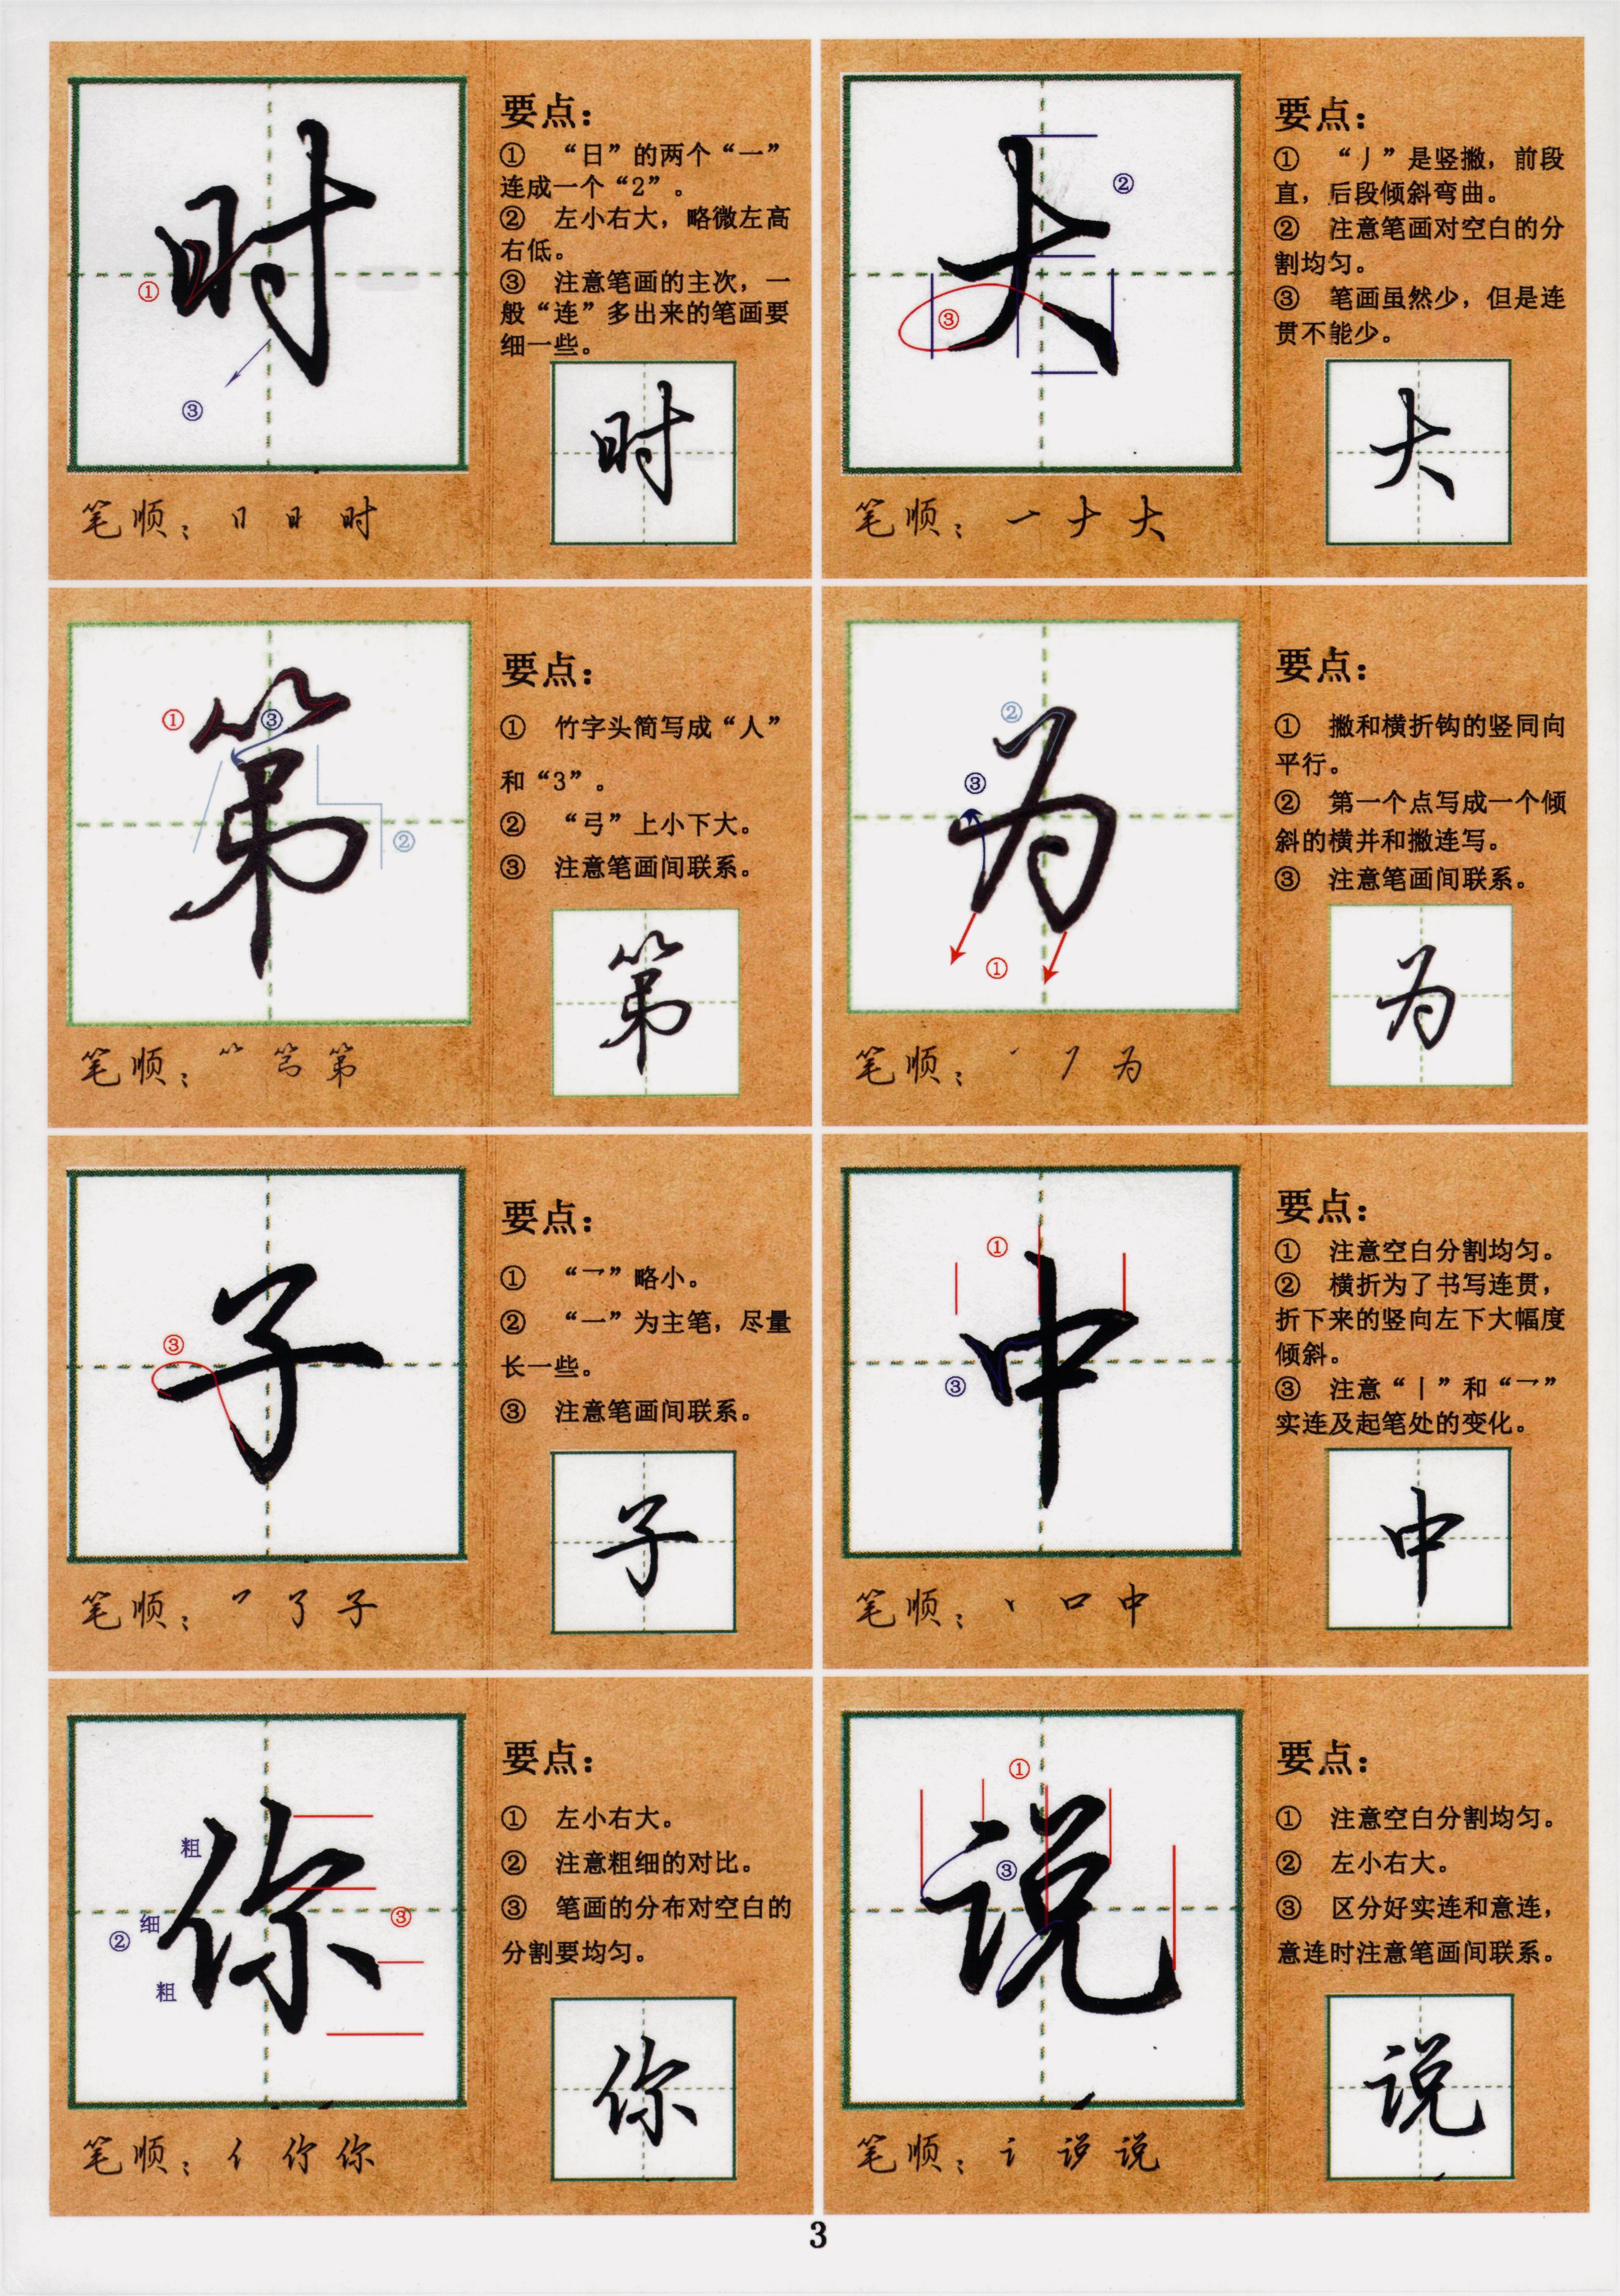 时
①
③
要点：
① “日”的两个“一”
连成一个“2”。
② 左小右大，略微左高
右低。
③ 注意笔画的主次，一
般“连”多出来的笔画要
细一些。
时
笔顺：日 时
大
②
③
要点：
① “丿”是竖撇，前段
直，后段倾斜弯曲。
② 注意笔画对空白的分
割均匀。
③ 笔画虽然少，但是连
贯不能少。
大
笔顺：一 ナ 大
第
①
③
②
要点：
① 竹字头简写成“人”
和“3”。
② “弓”上小下大。
③ 注意笔画间联系。
第
笔顺：第
为
②
③
①
要点：
① 撇和横折钩的竖同向
平行。
② 第一个点写成一个倾
斜的横并和撇连写。
③ 注意笔画间联系。
为
笔顺：丶 为
子
③
要点：
① “乛”略小。
② “一”为主笔，尽量
长一些。
③ 注意笔画间联系。
子
笔顺：乛 了 子
中
①
③
要点：
① 注意空白分割均匀。
② 横折为了书写连贯，
折下来的竖向左下大幅度
倾斜。
③ 注意“丨”和“乛”
实连及起笔处的变化。
中
笔顺：丶 口 中
你
粗
细
②
粗
③
要点：
① 左小右大。
② 注意粗细的对比。
③ 笔画的分布对空白的
分割要均匀。
你
笔顺：亻 你
说
①
③
要点：
① 注意空白分割均匀。
② 左小右大。
③ 区分好实连和意连，
意连时注意笔画间联系。
说
笔顺：讠 说
3